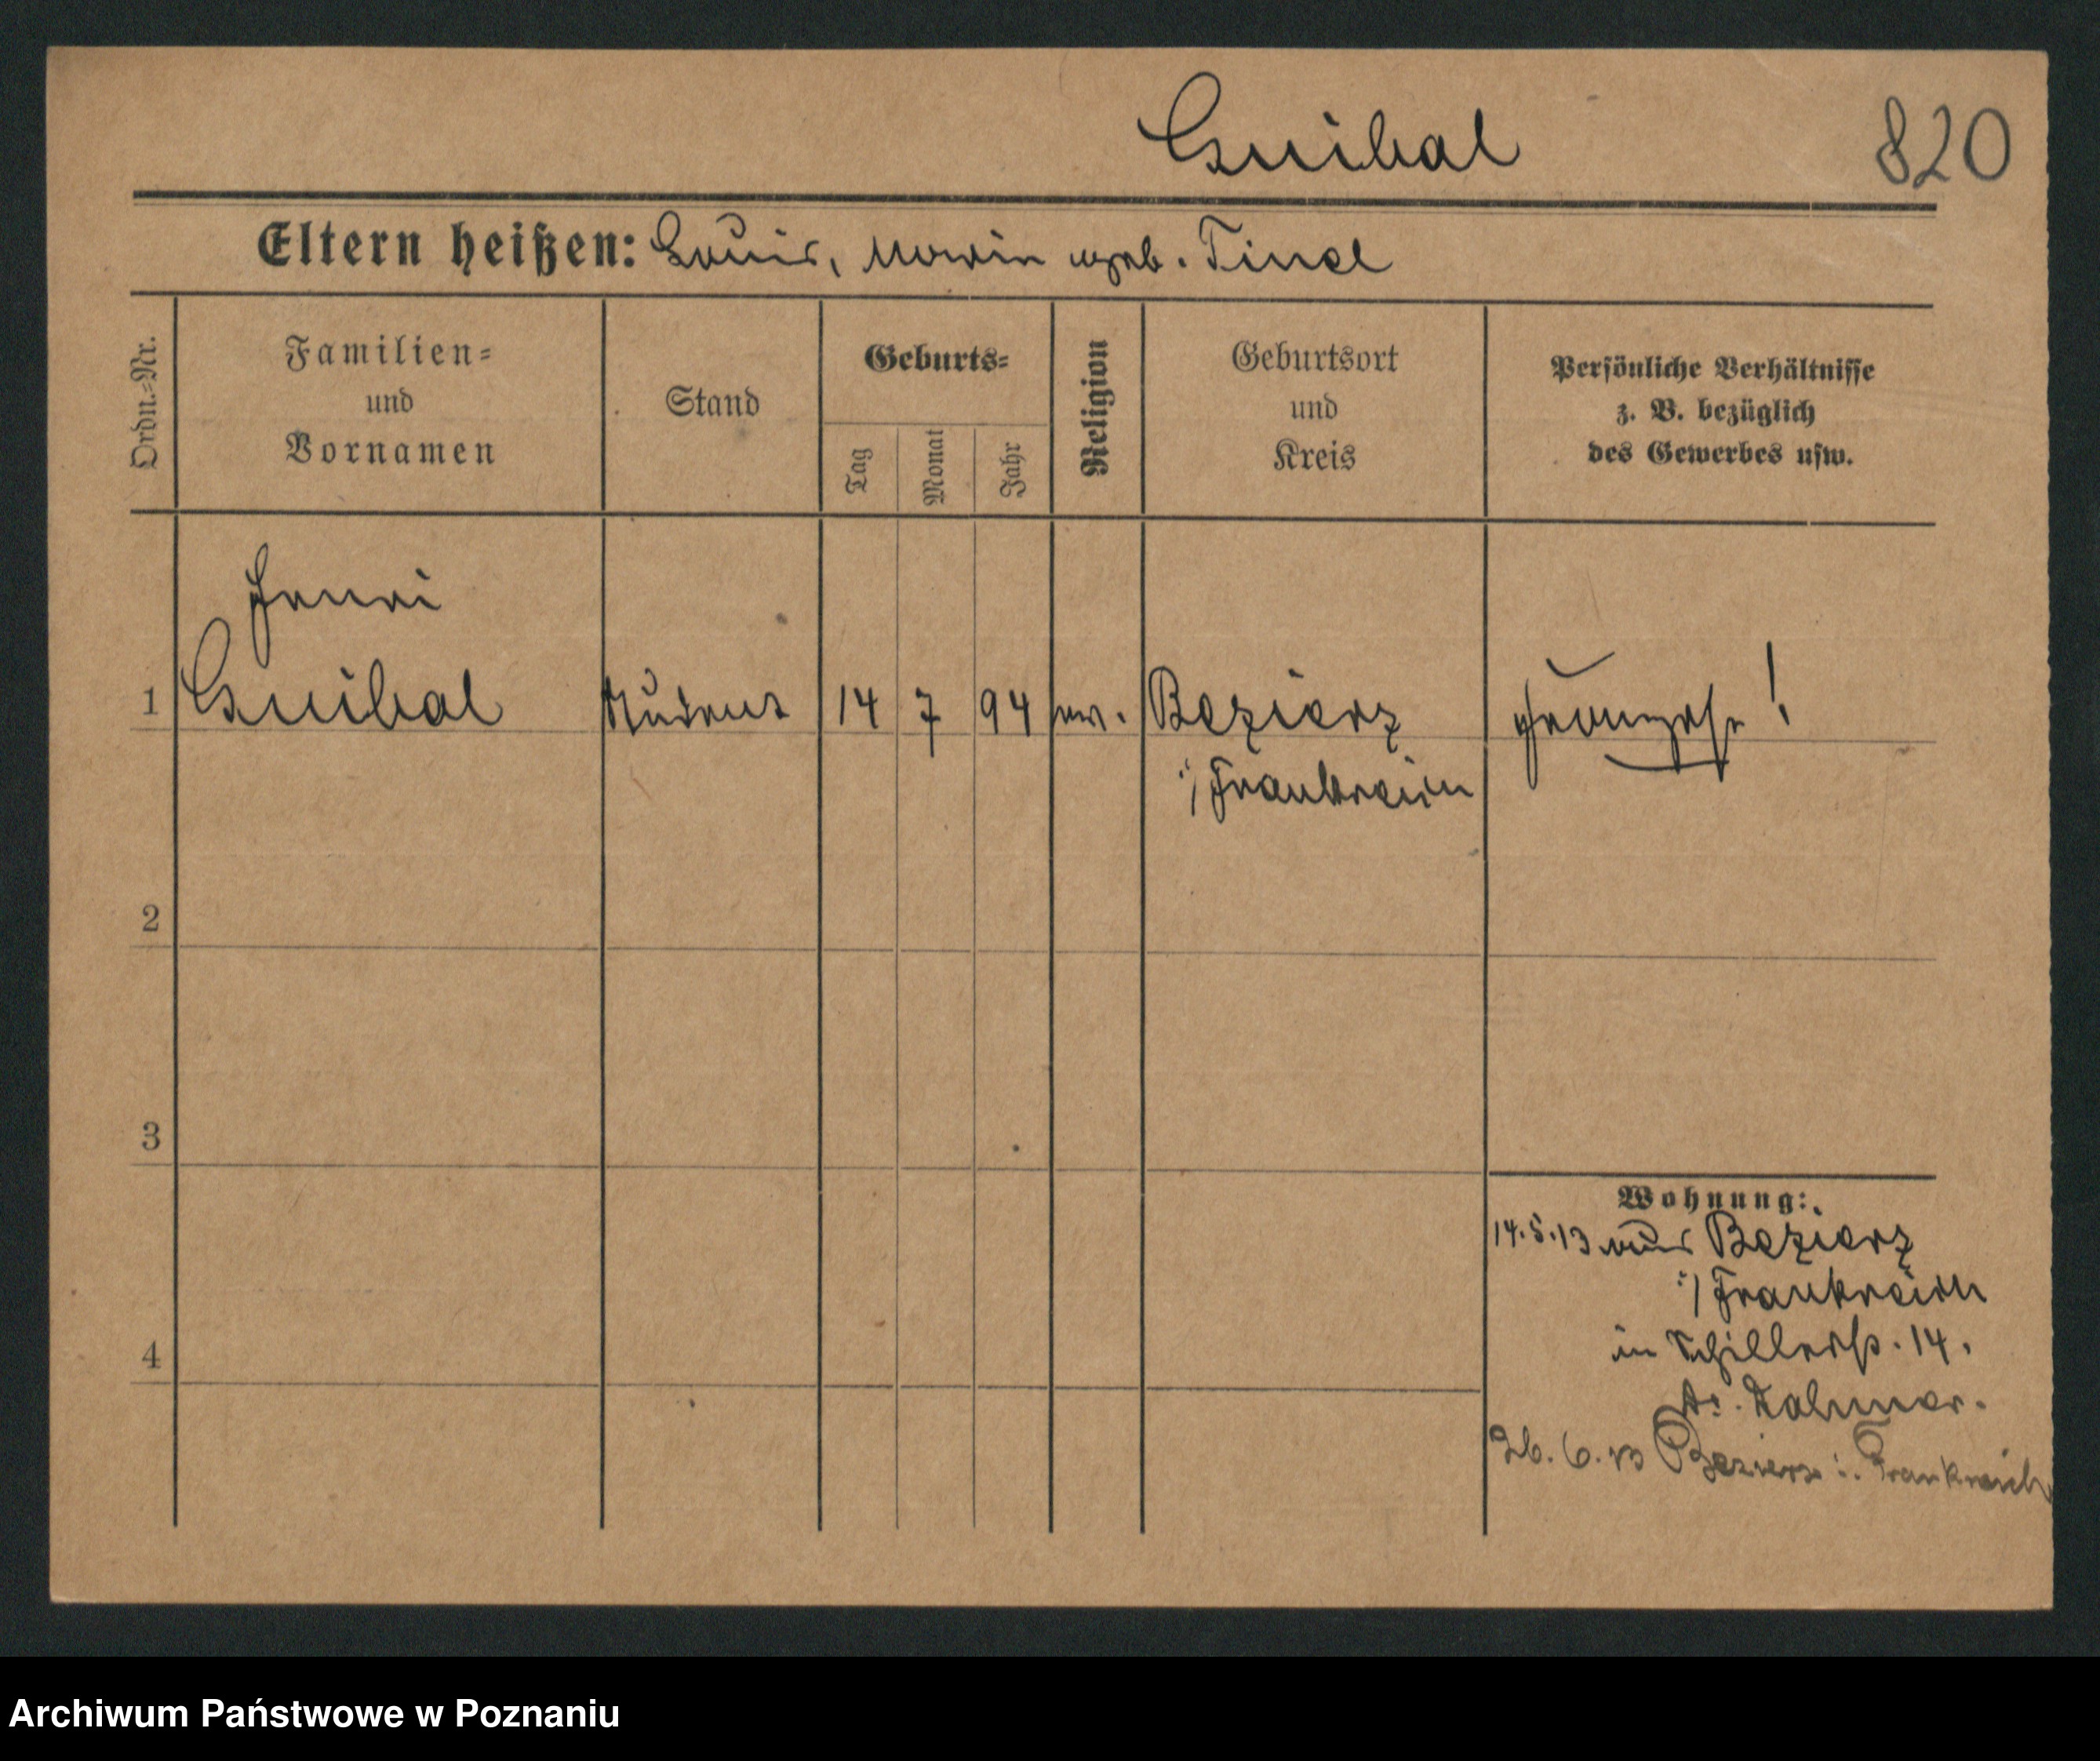 Guibal
820
Eltern heißen: Louis, Marie geb. Tinel
Ordn.=Nr.
Familien=
und
Vornamen
Stand
Geburts=
Tag
Monat
Jahr
Religion
Geburtsort
und
Kreis
Persönliche Verhältnisse
z. B. bezüglich
des Gewerbes usw.
Henri
1 Guibal Student 14 7 94 ev. Bezierz Franzose!
i/ Frankreich
2
3
4
Wohnung:
14.5.13 aus Bezierz
i/ Frankreich
in Schillerstr. 14.
26.6.13 Bezierz i. Frankreich
Archiwum Państwowe w Poznaniu